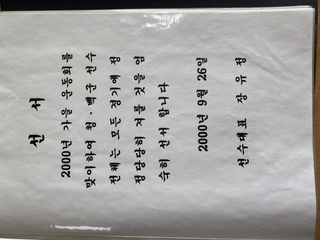 선 서
2000년 가을 운동회를
맞이하여 청·백군 선수
전체는 모든 경기에 정
정당당히 겨룰 것을 엄
숙히 선서 합니다
2000년 9월 26일
선수대표 장유정